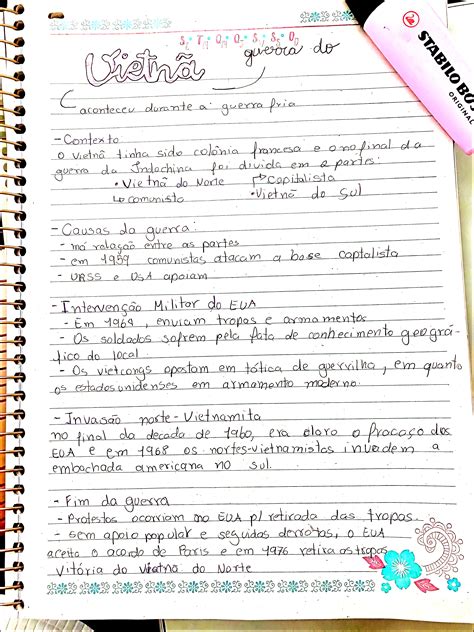 S. T. Q. Q. S. S. D.
guerra do
Vietnã
aconteceu durante a: guerra fria
- Contexto
O vietnã tinha sido colônia francesa e o no final da
guerra da Indochina foi divida em 2 partes:
• Vietnã do Norte ↱ Capitalista
↳ comunista • Vietnã do Sul
- Causas da guerra:
- má ralação entre as partes
- em 1959 comunistas atacam a base captalista
- URSS e USA apoiam
- Intervenção Militar do EUA
- Em 1964, enviam tropas e armamentos
- Os soldados sofrem pela fata de conhecimento geográ-
fico do local
- Os vietcongs apostam em tática de guervilha, em quanto
os estadosunidenses em armamento moderno.
- Invasão norte-Vietnamita
no final da decada de 1960, era claro o fracaço dos
EUA e em 1968 os nortes-vietnamistas invadem a
embachada americana no sul.
- Fim da guerra
- Protestos ocorriam no EUA p/ retirada das tropas.
- sem apoio popular e seguidas derrotas, o EUA
aceito o acordo de Paris e em 1976 retira as tropas
Vitória do Vietnã do Norte
STABILO BOSS
ORIGINAL